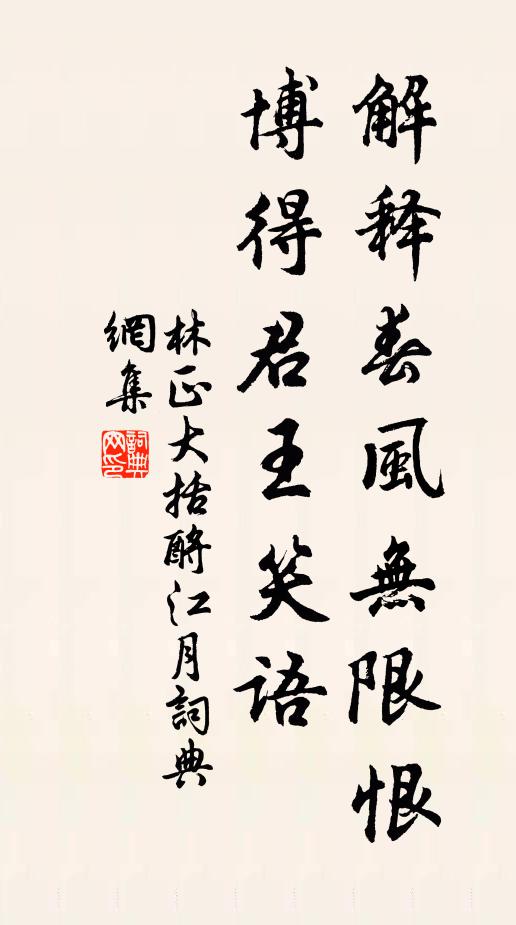 解释春風無限恨
博得君王笑語
林正大括酹江月詞典
網集
詞典網印